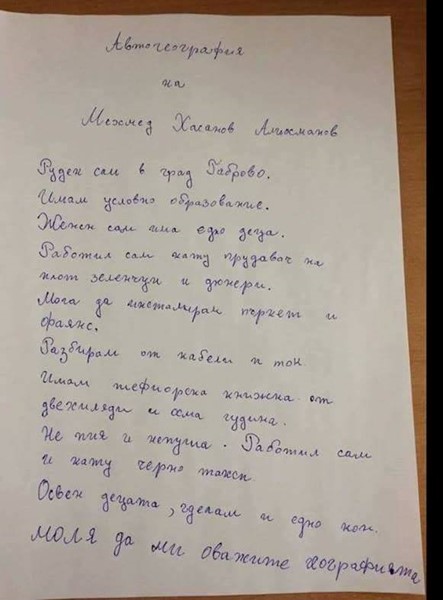 Автогеография
на
Мехмед Хасанов Алиосманов
Руден сам в град Габрово.
Имам условно образование.
Женен сам има едно деца.
Работил сам кату прудавач на
плот зеленчуци и дюнери.
Мога да инсталирам пъркет и
фаянс.
Разбирам от кабели и ток
Имам шефиорска книжка от
двехиляди и осма гудина.
Не пия и непуша. Работил сам
и кату черно такси
Освен децата, гделам и едно кон.
МОЛЯ да ми оважите хеографията